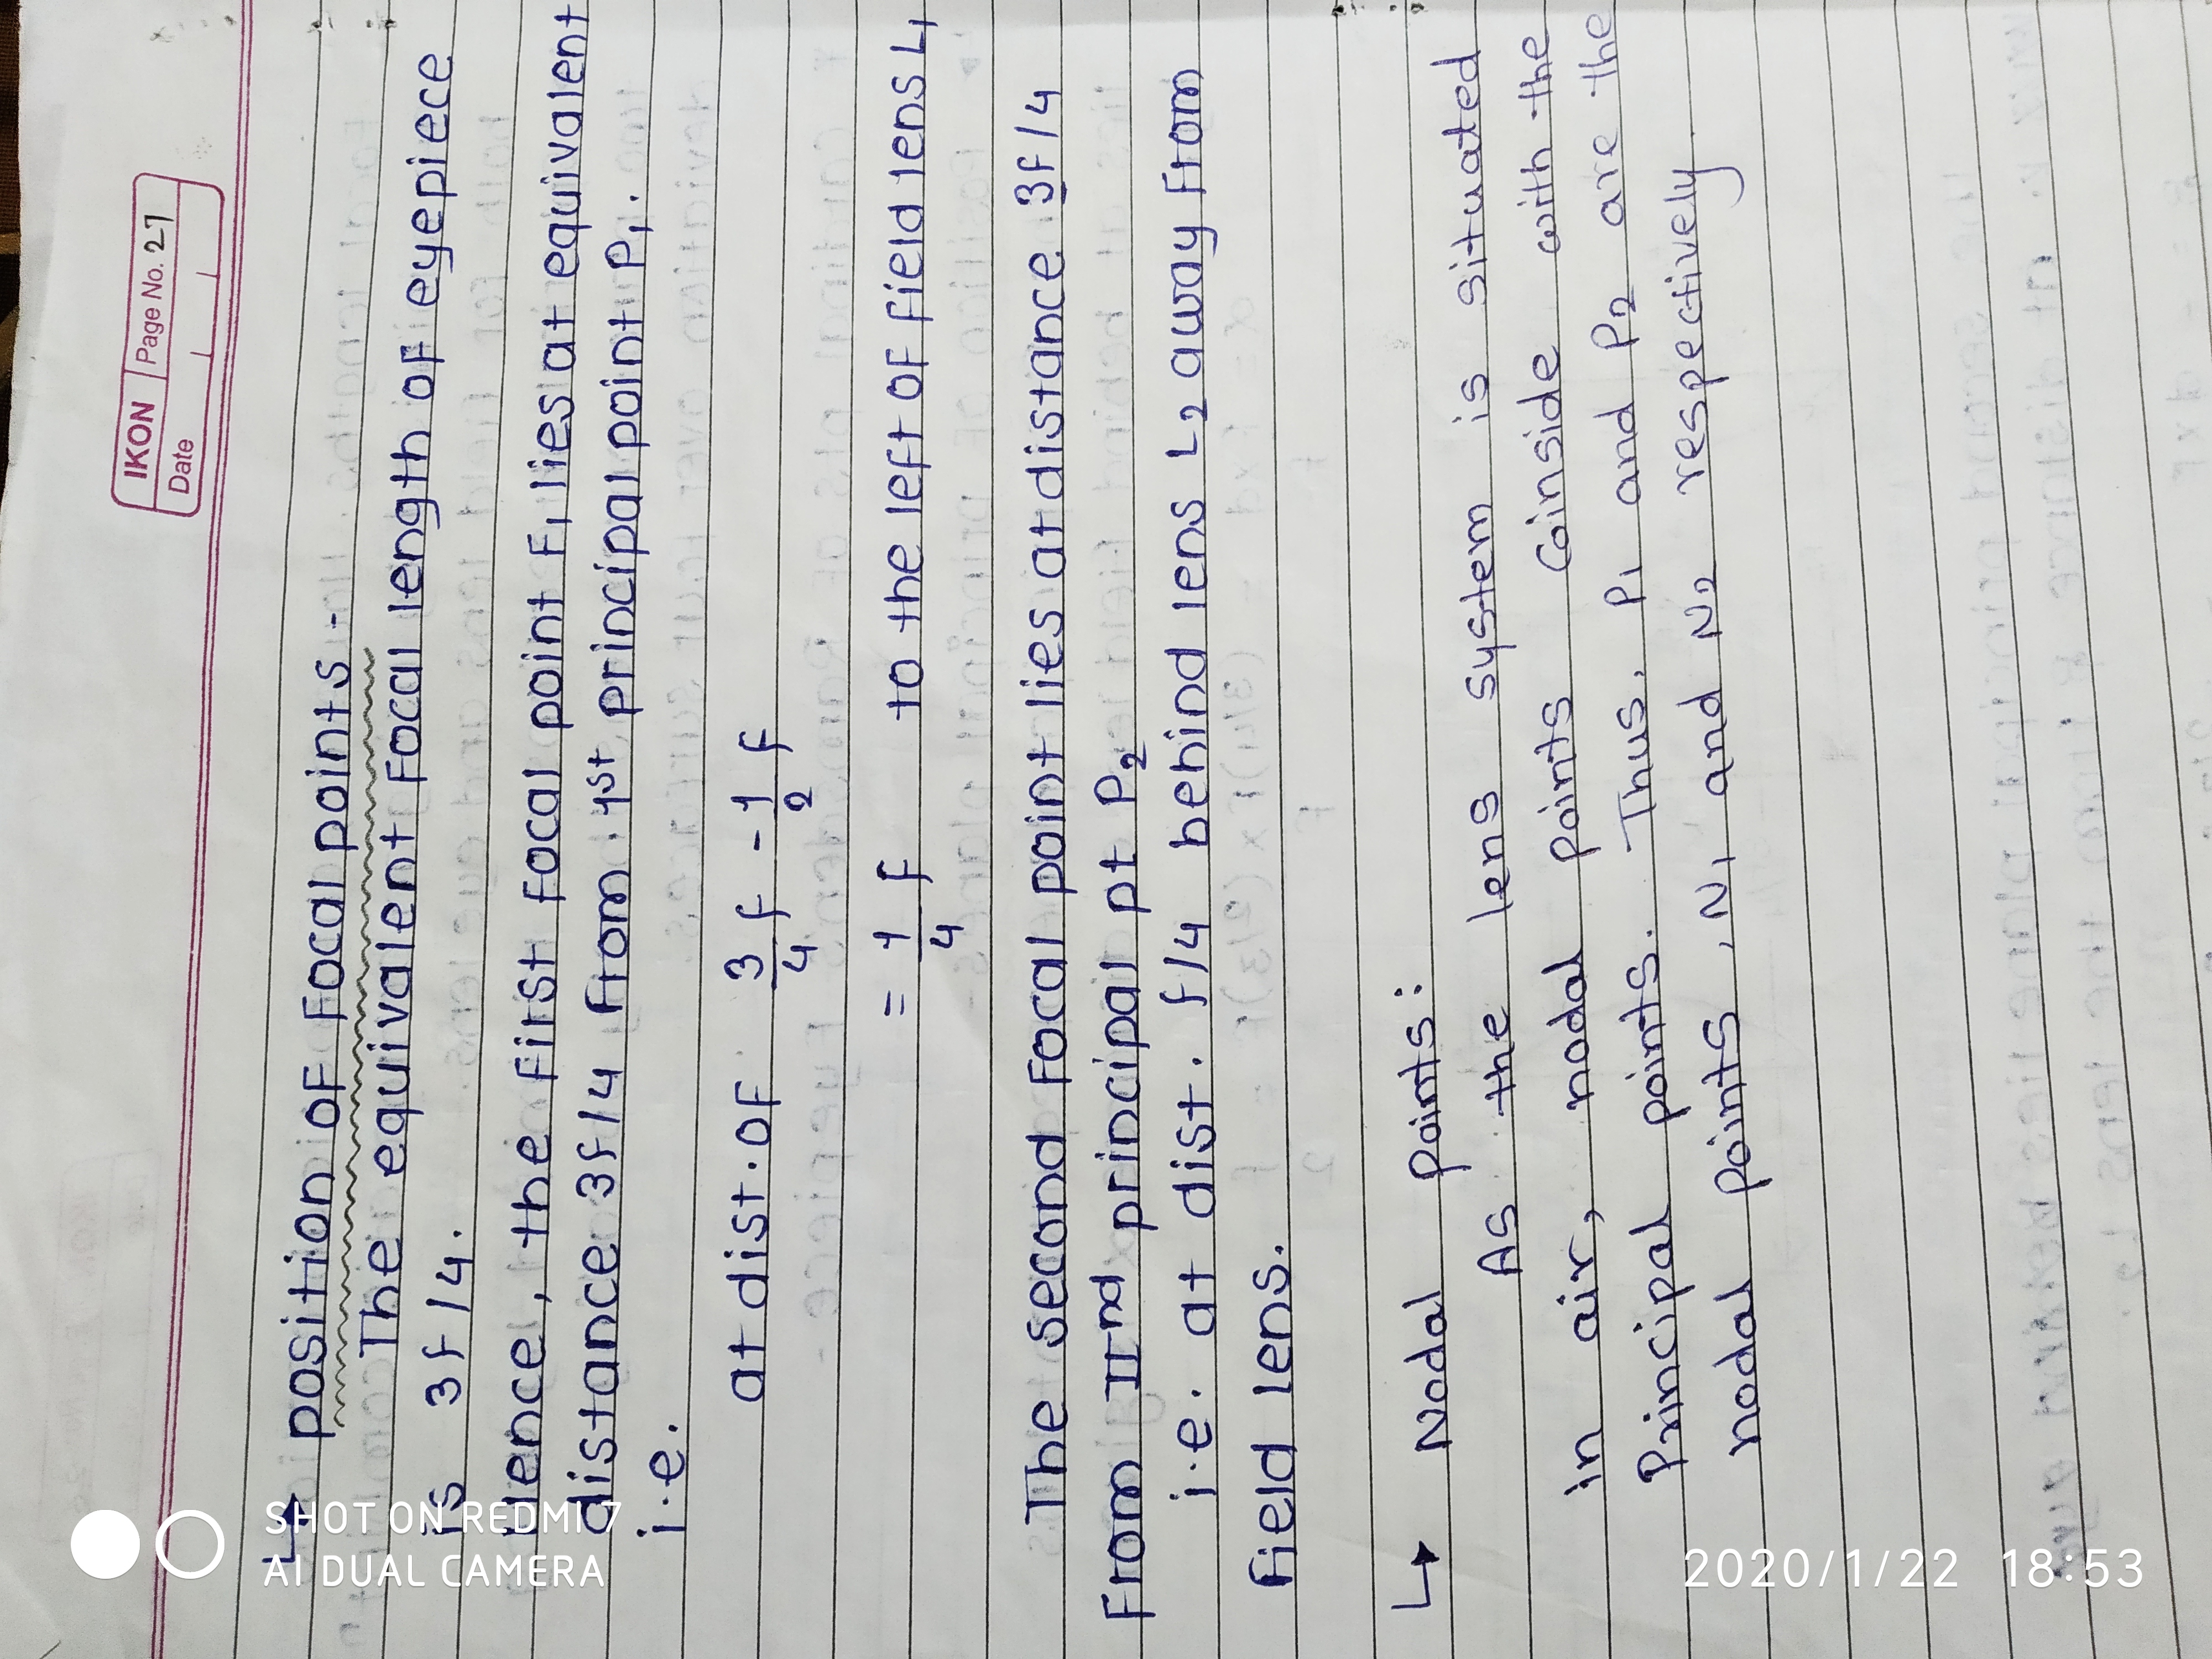 IKON Page No. 27
Date
↳ position of focal points -
The equivalent focal length of eyepiece
is 3f/4.
Hence, the first focal point F₁ lies at equivalent
distance 3f/4 from 1st principal point P₁.
i.e.
at dist. of 3/4 f - 1/2 f
= 1/4 f to the left of field lens L₁
The second focal point lies at distance 3f/4
From IInd principal pt P₂
i.e. at dist. f/4 behind lens L₂ away from
field lens.
↳ Nodal points:
As the lens system is situated
in air, nodal points coinside with the
Principal points. Thus, P₁ and P₂ are the
nodal points, N₁ and N₂ respectively
SHOT ON REDMI 7
AI DUAL CAMERA
2020/1/22 18:53